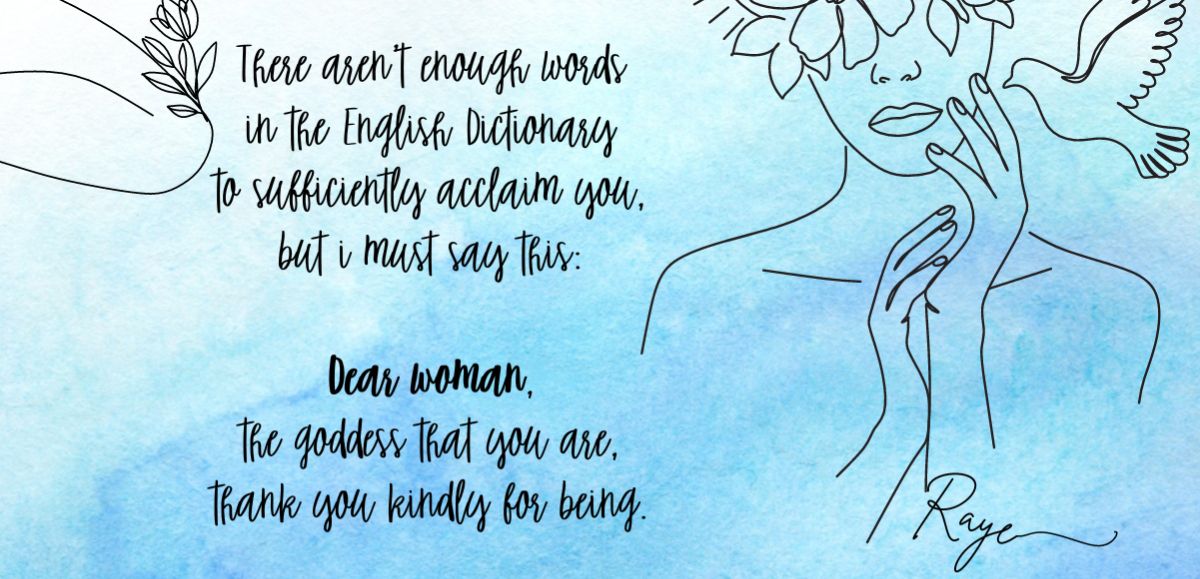 There aren't enough words
in the English Dictionary
to sufficiently acclaim you,
but i must say this:
Dear woman,
the goddess that you are,
thank you kindly for being.
Raye